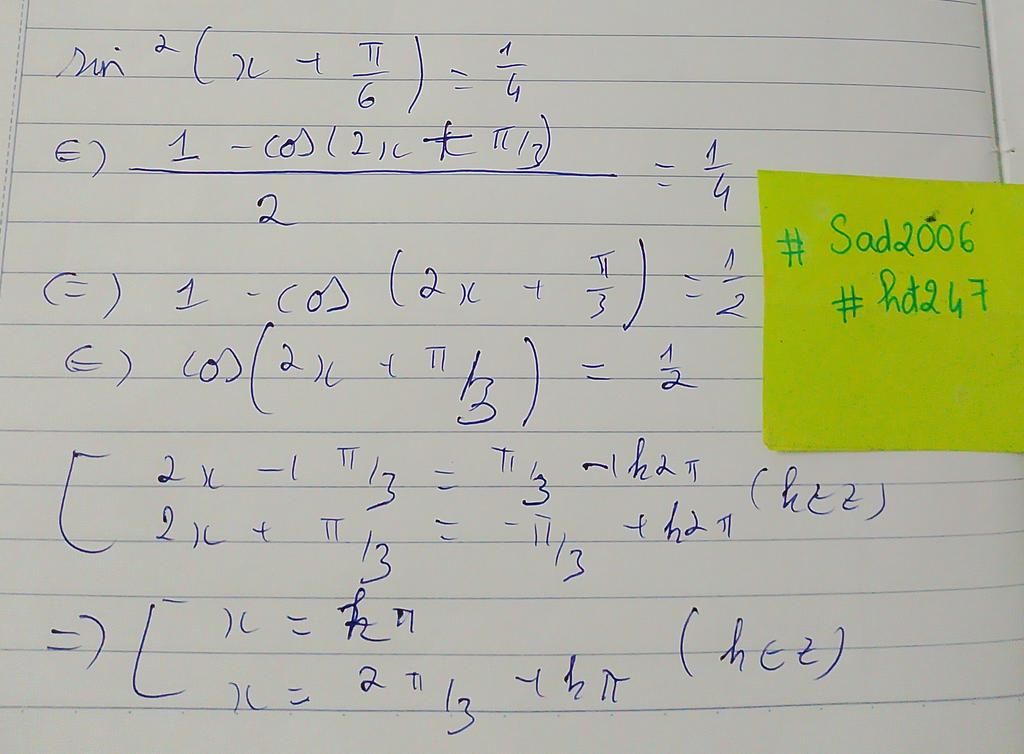 sin² (x + π/6) = 1/4
⇔) (1 - cos(2x + π/3))/2 = 1/4
(=) 1 - cos (2x + π/3) = 1/2
⇔) cos(2x + π/3) = 1/2
[ 2x + π/3 = π/3 + k2π
2x + π/3 = -π/3 + k2π (k∈Z)
=) [ x = kπ
x = 2π/3 + kπ (k∈Z)
# Sad2006
# hđ247